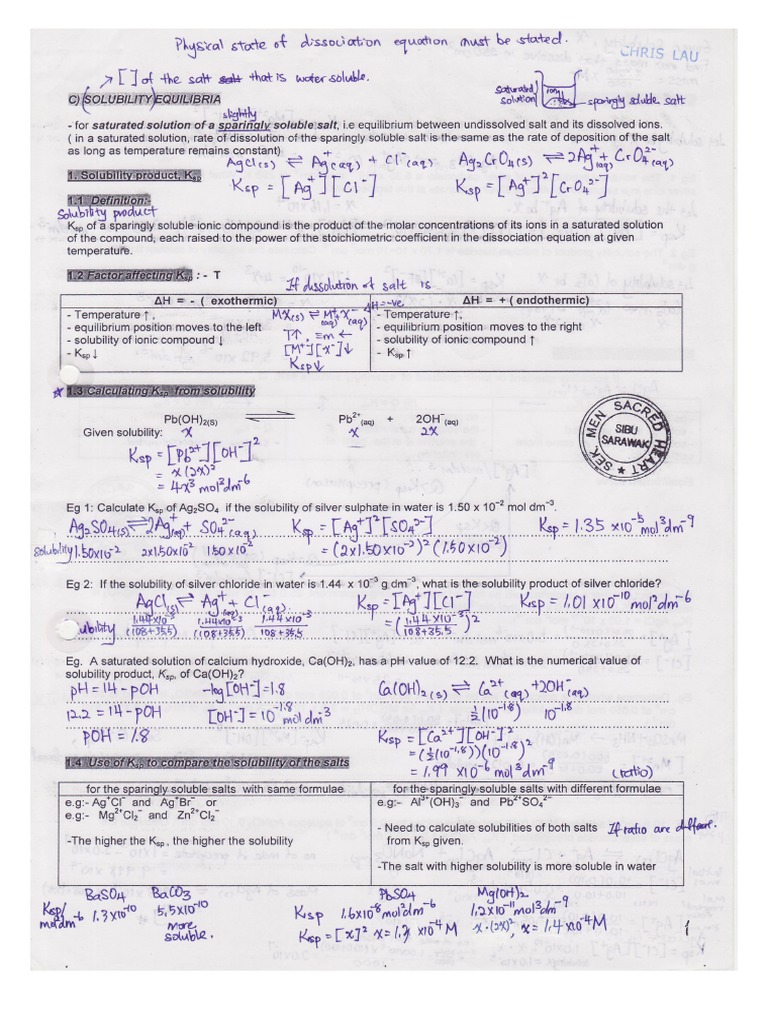 Physical state of dissociation equation must be stated.
CHRIS LAU
→ [ ] of the salt that is water soluble.
saturated solution
ions
sparingly soluble salt
C) SOLUBILITY EQUILIBRIA
slightly
- for saturated solution of a sparingly soluble salt, i.e equilibrium between undissolved salt and its dissolved ions.
( in a saturated solution, rate of dissolution of the sparingly soluble salt is the same as the rate of deposition of the salt
as long as temperature remains constant)
AgCl(s) ⇌ Ag⁺(aq) + Cl⁻(aq) Ag₂CrO₄(s) ⇌ 2Ag⁺(aq) + CrO₄²⁻(aq)
1. Solubility product, Ksp
Ksp = [Ag⁺][Cl⁻] Ksp = [Ag⁺]²[CrO₄²⁻]
1.1 Definition:-
Solubility product
Ksp of a sparingly soluble ionic compound is the product of the molar concentrations of its ions in a saturated solution
of the compound, each raised to the power of the stoichiometric coefficient in the dissociation equation at given
temperature.
1.2 Factor affecting Ksp : - T
If dissolution of salt is
ΔH = - ( exothermic)
- Temperature ↑ ,
- equilibrium position moves to the left
- solubility of ionic compound ↓
- Ksp ↓
ΔH = -ve
MX(s) ⇌ M⁺(aq) + X⁻(aq)
T↑, Eqm ←
[M⁺][X⁻]↓
Ksp↓
ΔH = + ( endothermic)
- Temperature ↑,
- equilibrium position moves to the right
- solubility of ionic compound ↑
- Ksp ↑
* 1.3 Calculating Ksp from solubility
Pb(OH)₂(S) ⇌ Pb²⁺(aq) + 2OH⁻(aq)
Given solubility: x x 2x
Ksp = [Pb²⁺][OH⁻]²
= x(2x)²
= 4x³ mol³dm⁻⁹
SEK MEN SACRED HEART
SIBU
SARAWAK
Eg 1: Calculate Ksp of Ag₂SO₄ if the solubility of silver sulphate in water is 1.50 x 10⁻² mol dm⁻³.
Ag₂SO₄(s) ⇌ 2Ag⁺(aq) + SO₄²⁻(aq) Ksp = [Ag⁺]²[SO₄²⁻] Ksp = 1.35 x10⁻⁵ mol³dm⁻⁹
solubility 1.50x10⁻² 2x1.50x10⁻² 1.50x10⁻² = (2x1.50x10⁻²)²(1.50x10⁻²)
Eg 2: If the solubility of silver chloride in water is 1.44 x 10⁻³ g dm⁻³, what is the solubility product of silver chloride?
AgCl(s) ⇌ Ag⁺(aq) + Cl⁻(aq) Ksp = [Ag⁺][Cl⁻] Ksp = 1.01 x10⁻¹⁰ mol²dm⁻⁶
solubility 1.44x10⁻³/(108+35.5) 1.44x10⁻³/(108+35.5) 1.44x10⁻³/108+35.5 = (1.44x10⁻³/108+35.5)²
Eg. A saturated solution of calcium hydroxide, Ca(OH)₂, has a pH value of 12.2. What is the numerical value of
solubility product, Ksp, of Ca(OH)₂?
pH = 14 - pOH -log[OH⁻] = 1.8 Ca(OH)₂(s) ⇌ Ca²⁺(aq) + 2OH⁻(aq)
12.2 = 14 - pOH [OH⁻] = 10⁻¹·⁸ mol dm⁻³ ½(10⁻¹·⁸) 10⁻¹·⁸
pOH = 1.8 Ksp = [Ca²⁺][OH⁻]²
= (½(10⁻¹·⁸))(10⁻¹·⁸)²
= 1.99 x10⁻⁶ mol³dm⁻⁹
1.4 Use of Ksp to compare the solubility of the salts
(ratio)
for the sparingly soluble salts with same formulae
e.g:- Ag⁺Cl⁻ and Ag⁺Br⁻ or
e.g:- Mg²⁺Cl₂⁻ and Zn²⁺Cl₂⁻
-The higher the Ksp , the higher the solubility
for the sparingly soluble salts with different formulae
e.g:- Al³⁺(OH)₃⁻ and Pb²⁺SO₄²⁻
- Need to calculate solubilities of both salts If ratio are different.
from Ksp given.
-The salt with higher solubility is more soluble in water
BaSO₄ BaCO₃ PbSO₄ Mg(OH)₂
Ksp/mol²dm⁻⁶ 1.3x10⁻¹⁰ 5.5x10⁻¹⁰ Ksp 1.6x10⁻⁸ mol²dm⁻⁶ 1.2x10⁻¹¹ mol³dm⁻⁹
more soluble. Ksp = [x]² x = 1.3 x10⁻⁴ M x·(2x)², x = 1.4x10⁻⁴ M
1